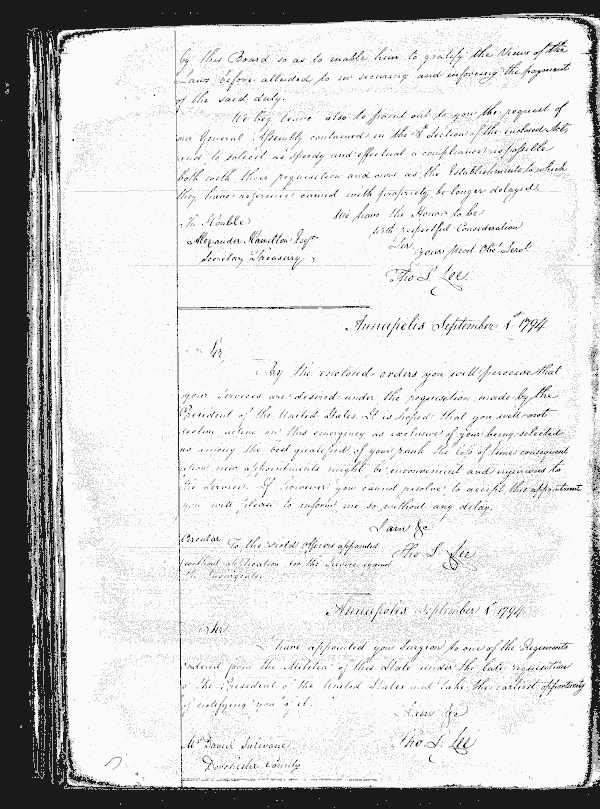 by this Board so as to enable him to gratify the Views of the
Laws before alluded to in securing and enforcing the payment
of the said duty.
We beg leave also to point out to you the request of
our General Assembly contained in the 8 Section of the enclosed Act,
and to solicit as speedy and effectual a compliance as possible
both with their requisition and ours as the Establishments to which
they have reference cannot with propriety be longer delayed.
We have the Honor to be
with respectful Consideration
Sir
Your Most Obt Servt
Tho S. Lee
The Honble
Alexander Hamilton Esqr
Secretary Treasury
Annapolis September 1st 1794
Sir
By the enclosed orders you will perceive that
your Services are desired under the requisition made by the
President of the United States. It is hoped that you will not
decline acting on this emergency as exclusive of your being selected
as among the best qualified of your rank the loss of time consequent
upon new appointments might be inconvenient and injurious to
the Service. If however you cannot resolve to accept this appointment
you will please to inform me so without any delay.
I am &c
Tho S. Lee
Circular To the Field Officers appointed
without application for the Service against
the Insurgents
Annapolis September 1st 1794
Sir
I have appointed you Surgeon to one of the Regiments
ordered from the Militia of this State under the late requisition
of the President of the United States and take the earliest opportunity
of notifying you of it.
I am &c
Tho S. Lee
Mr David
Dorchester County